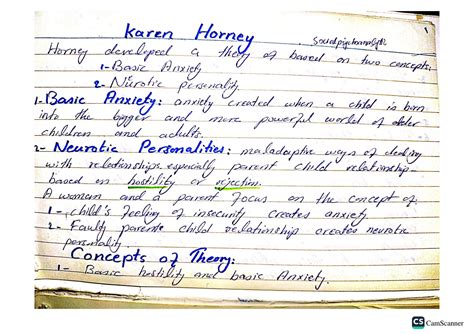 Karen Horney
Socialpsychoanalytic
Horney developed a theory of based on two concepts.
1- Basic Anxiety
2- Nurotic personality
1- Basic Anxiety: anxiety created when a child is born
into the bigger and more powerful world of older
children and adults.
2- Neurotic Personalities: maladaptive ways of dealing
with relationships especially parent child relationship
based on hostility or rejection.
A woman and a parent focus on the concept of
1- child's feeling of insecurity creates anxiety.
2- Faulty parente child relationship creates neurotic
personality
Concepts of Theory:
1- Basic hostility and basic Anxiety.
CS CamScanner